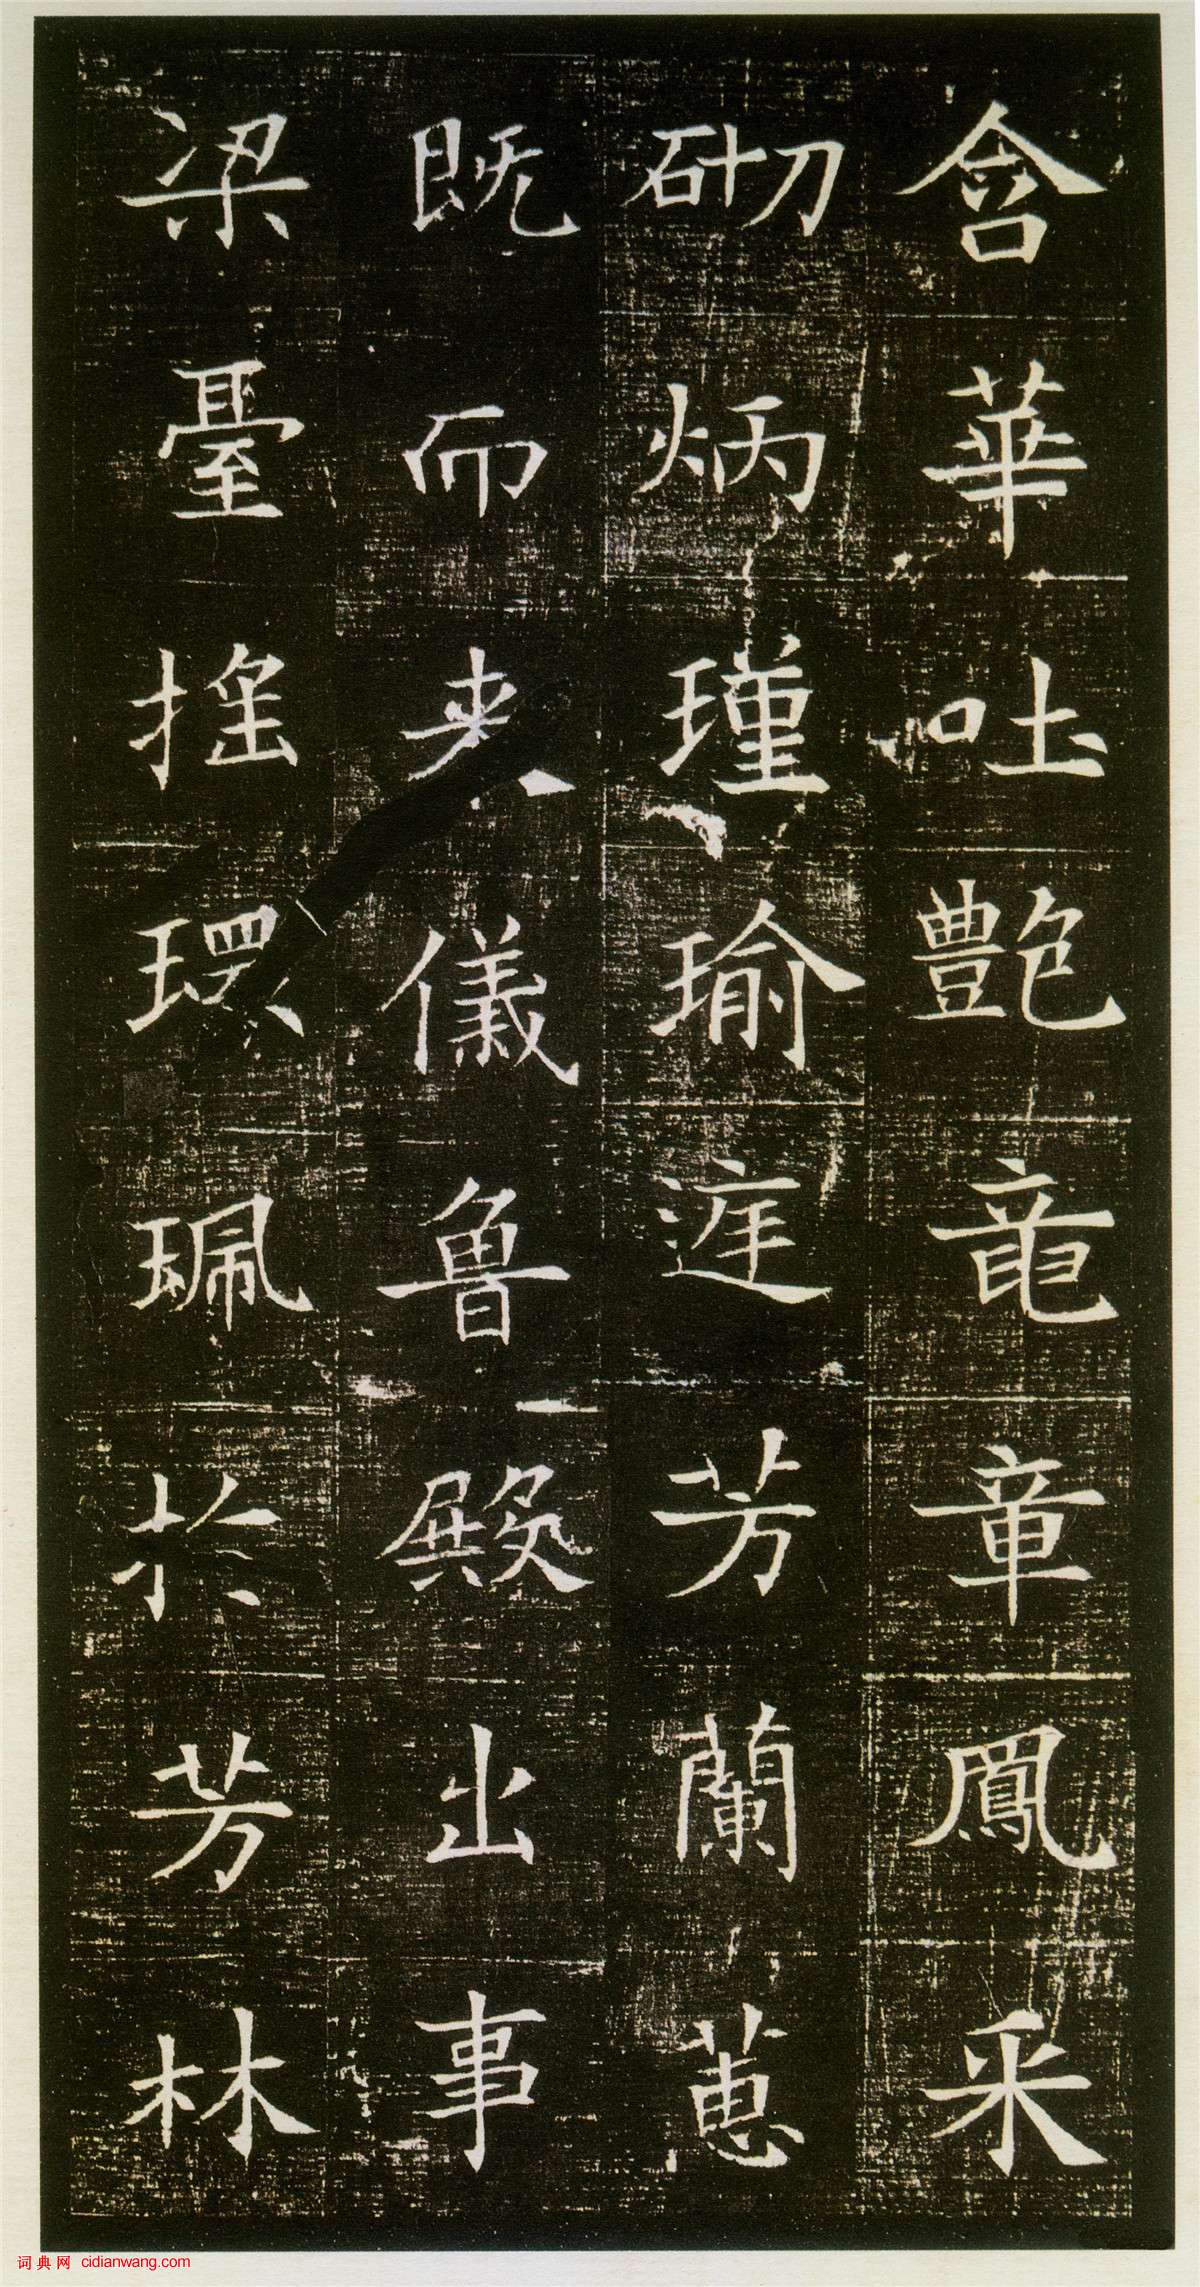 含華吐艷竜章鳳采
砌炳瑾瑜遳芳蘭蕙
既而来儀魯殿出事
梁臺搖環珮於芳林
词典网 cidianwang.com